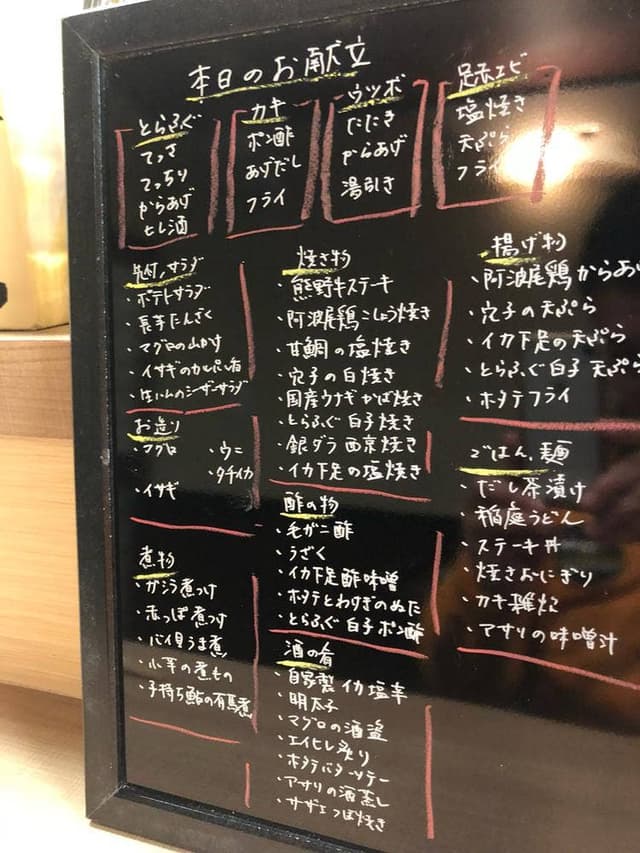 本日のお献立
とらふぐ
てっさ
てっちり
からあげ
ヒレ酒
カキ
ポン酢
あげだし
フライ
ウツボ
たたき
からあげ
湯引き
足赤エビ
塩焼き
天ぷら
フライ
先付、サラダ
・ポテトサラダ
・長芋たんざく
・マグロの山かけ
・イサギのカルパッチョ
・生ハムのシーザーサラダ
お造り
・マグロ ・ウニ
・タチイカ
・イサギ
煮物
・ガシラ煮つけ
・赤っぽ煮つけ
・バイ貝うま煮
・小芋の煮もの
・子持ち鮎の有馬煮
焼き物
・熊野牛ステーキ
・阿波尾鶏こしょう焼き
・甘鯛の塩焼き
・穴子の白焼き
・国産ウナギかば焼き
・とらふぐ白子焼き
・銀ダラ西京焼き
・イカ下足の塩焼き
酢の物
・毛ガニ酢
・うざく
・イカ下足酢味噌
・ホタテとわけぎのぬた
・とらふぐ白子ポン酢
酒の肴
・自家製イカ塩辛
・明太子
・マグロの酒盗
・エイヒレ炙り
・ホタテバターソテー
・アサリの酒蒸し
・サザエつぼ焼き
揚げ物
・阿波尾鶏からあげ
・穴子の天ぷら
・イカ下足の天ぷら
・とらふぐ白子天ぷら
・ホタテフライ
ごはん、麺
・だし茶漬け
・稲庭うどん
・ステーキ丼
・焼きおにぎり
・カキ雑炊
・アサリの味噌汁